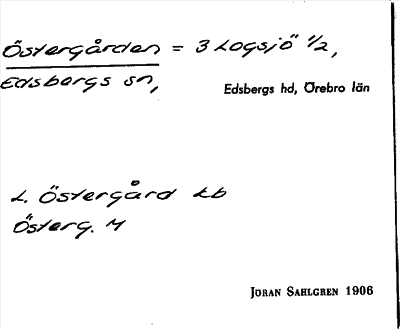 Östergården = 3 Logsjö 1/2,
Edsbergs sn,
Edsbergs hd, Örebro län
L. Östergård Lb
Österg. M
JÖRAN SAHLGREN 1906